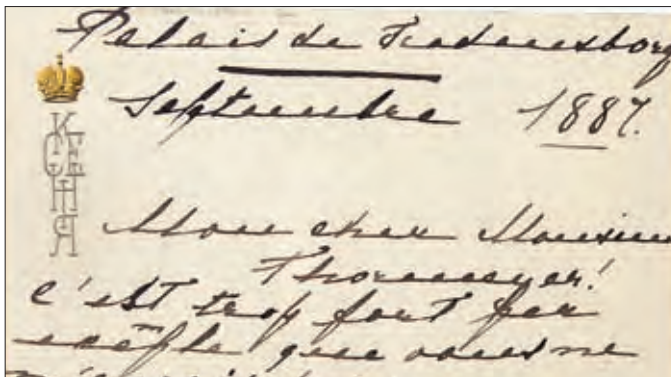 Palais de Fredensborg
КСЕНІЯ
Septembre 1887.
Mon cher Monsieur
Thormeyer!
c'est trop fort par
exèmple que vous ne